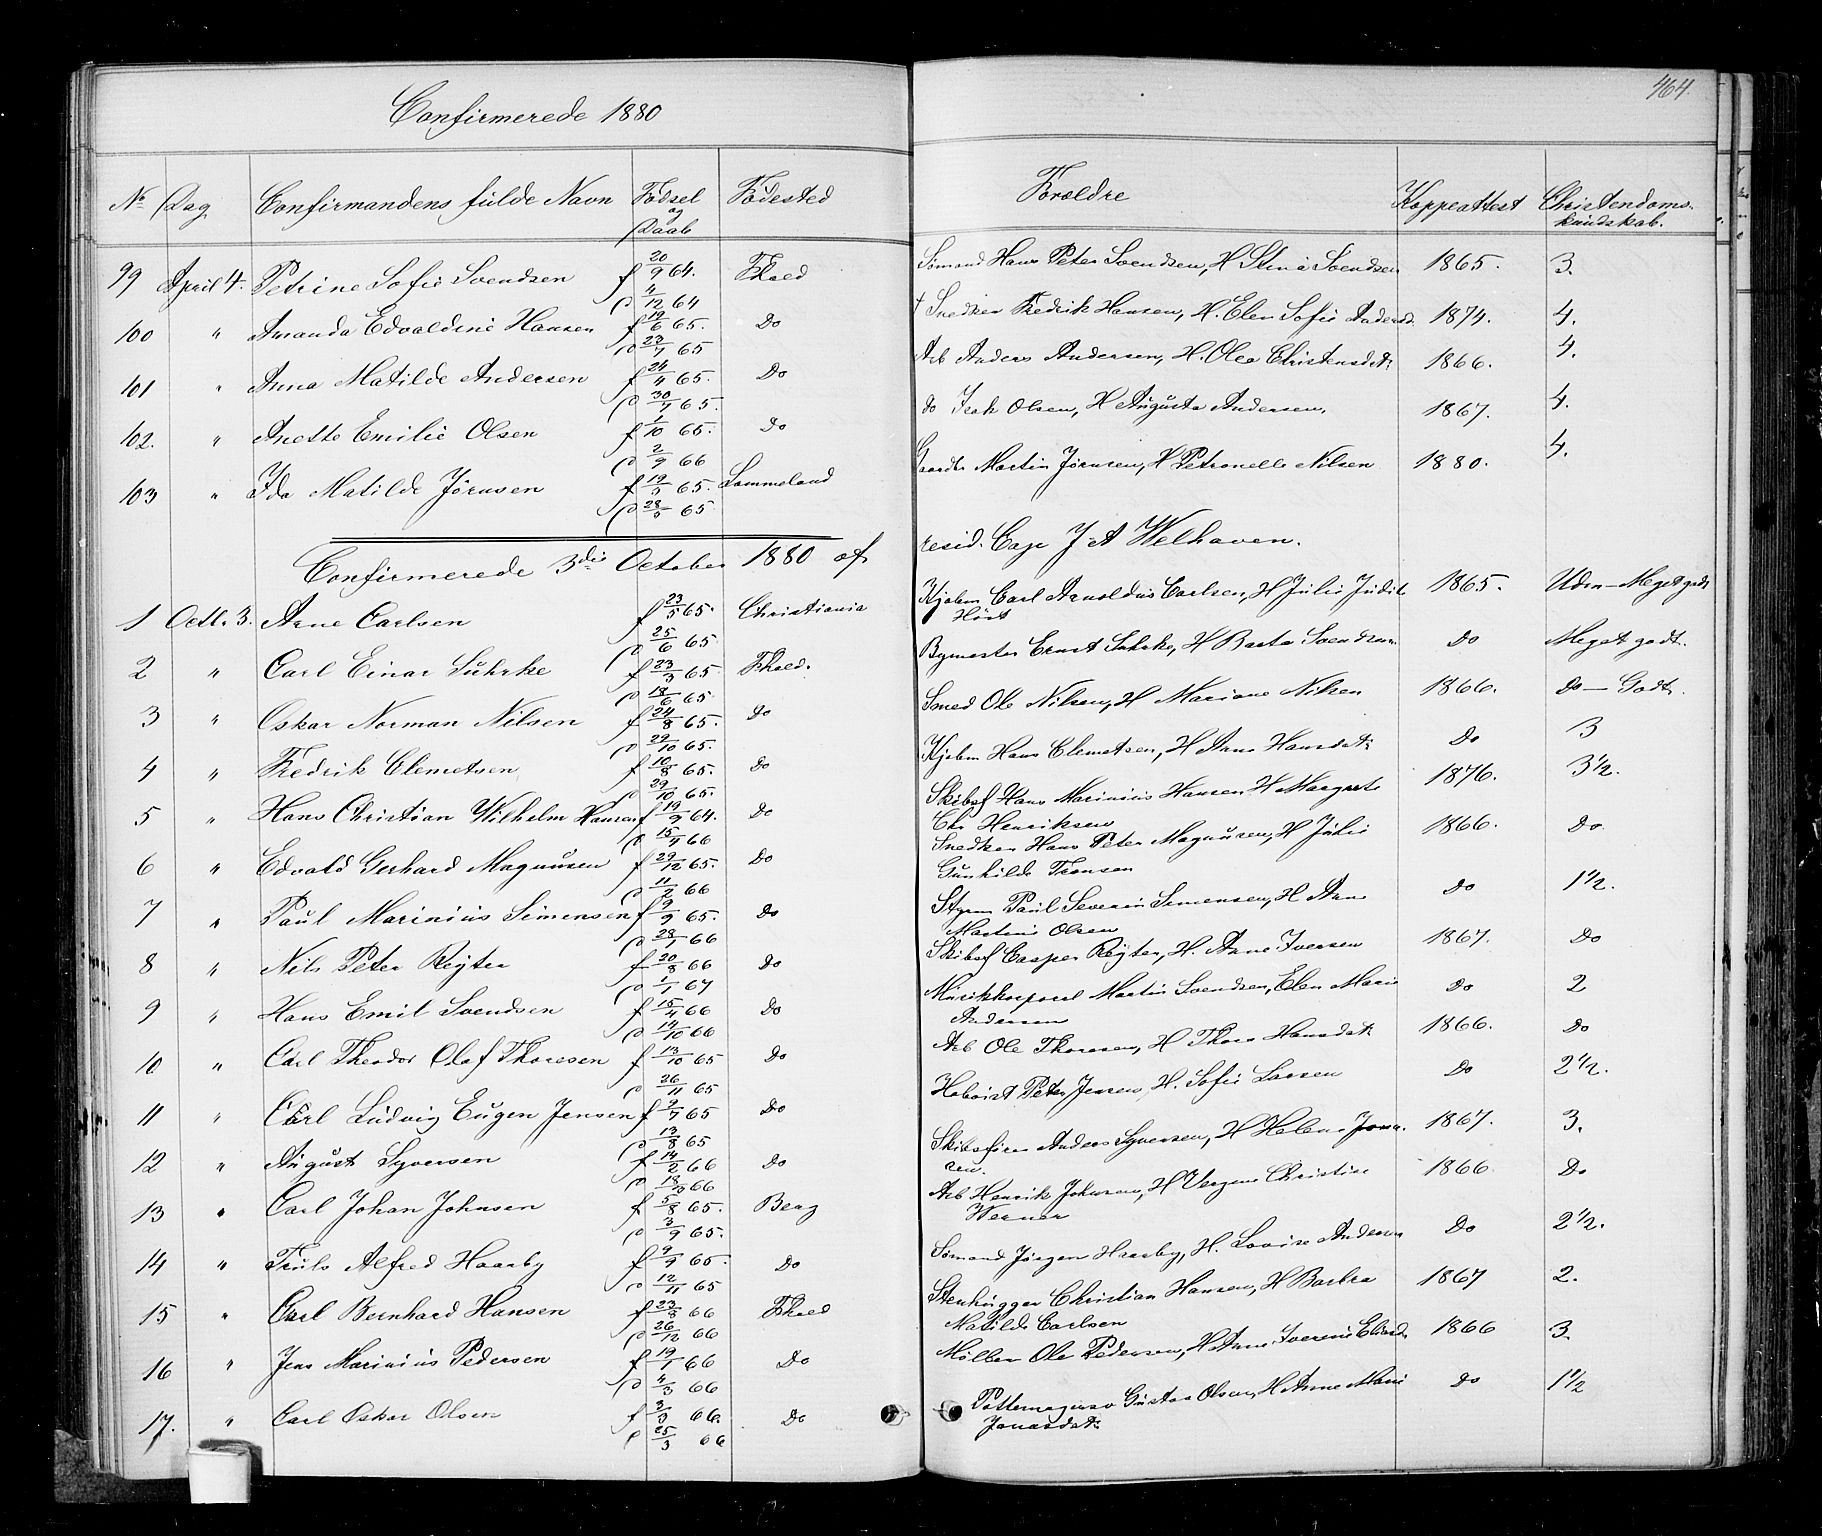 Confirmerede 1880
464.
No Dag Confirmandens fulde Navn Fødsel og Daab Fødested Forældre Koppeattest Christendoms-kundskab.
99 April 4. Petrine Sofie Svendsen f 20/9 64. D 4/12 64 Fhald Sømand Hans Peter Svendsen, H Stina Svendsen 1865. 3.
100 " Amanda Edvaldine Hansen f 19/6 65. D 23/7 65 Do † Snedker Fredrik Hansen, H. Elen Sofie Andersd. 1874. 4.
101 " Anna Matilde Andersen f 24/4 65. D 30/7 65. Do Arb Anders Andersen, H. Olea Christensdatr 1866. 4.
102. " Anette Emilie Olsen f 1/10 65. D 2/9 66 Do do Isak Olsen, H Augusta Andersen. 1867. 4.
103 " Ida Matilde Jørnsen f 19/5 65. D 28/5 65 Lammeland Gaardbr Martin Jørnsen, H Petronelle Nilsen 1880. 4.
Confirmerede 3die October 1880 af resid. Cap J A Welhaven.
1 Octb. 3. Arne Carlsen f 23/5 65. D 25/6 65 Christiania Kjøbm Carl Arnoldus Carlsen, H Julie Judit
Høst 1865. Udm - Meget godt
2 " Carl Einar Suhrke f 23/3 65 D 18/6 65 Fhald. Bymester Ernst Suhrke, H Berta Svendsen Do Meget godt.
3 " Oskar Norman Nilsen f 24/8 65. D 29/10 65. Do Smed Ole Nilsen, H Mariane Nilsen 1866. Do - Godt.
4 " Fredrik Clemetsen f 10/8 65. D 29/10 65. Do Kjøbm Hans Clemetsen, H Anne Hansdatr Do 3
5 " Hans Christian Wilhelm Hansen f 19/9 64. D 15/4 66 Do Skibsf Hans Marinius Hansen H Margrete
Chr Henriksen 1876. 3 1/2.
6 " Edvald Gerhard Magnusen f 29/12 65. D 11/2 66 Do Snedker Hans Peter Magnusen, H Julie
Gunhilde Fransen 1866. Do.
7 " Paul Marinius Simensen f 9/9 65. D 28/1 66 Do Styrm Paul Severin Simensen, H Anne
Martine Olsen Do 1 1/2.
8 " Nils Peter Røyter f 20/8 66 D 1/1 67 Do Skibsf Casper Røyter, H. Anne Iversen 1867. Do
9 " Hans Emil Svendsen f 15/4 66 D 14/10 66 Do Musikkorporal Martin Svendsen, Elen Marie
Andersen Do 2
10 " Carl Theodor Olaf Thoresen f 13/10 65 D 26/11 65 Do Arb Ole Thoresen, H Thora Hansdatr 1866. Do
11 " Carl Ludvig Eugen Jensen f 2/7 65 D 13/8 65 Do Hoboist Peter Jensen, H. Sofie Larsen Do 2 1/2.
12 " August Syversen f 14/2 66 D 18/3 66 Do Skibsfører Anders Syversen, H Helene Jona-
sen. 1867. 3.
13 " Carl Johan Johnsen f 5/8 65. D 3/9 65. Berg Arb Henrik Johnsen, H Vergine Christine
Werner 1866. Do
14 " Truls Alfred Haaby f 9/9 65. D 12/11 65 Do Sømand Jørgen Haaby, H. Lovise Andersen Do 2 1/2.
15 " Carl Bernhard Hansen f 23/8 66 D 26/12 66 Fhald Stenhugger Christian Hansen, H Barbra
Matilde Carlsen 1867 2.
16 " Jens Marinius Pedersen f 19/1 66 D 4/3 66 Do Møller Ole Pedersen, H Anne Iverine 1866 3.
17. " Carl Oskar Olsen f 3/3 66. D 25/3 66 Do Pottemagersv Gustav Olsen, H Anne Marie
Jonasdatr Do 1 1/2